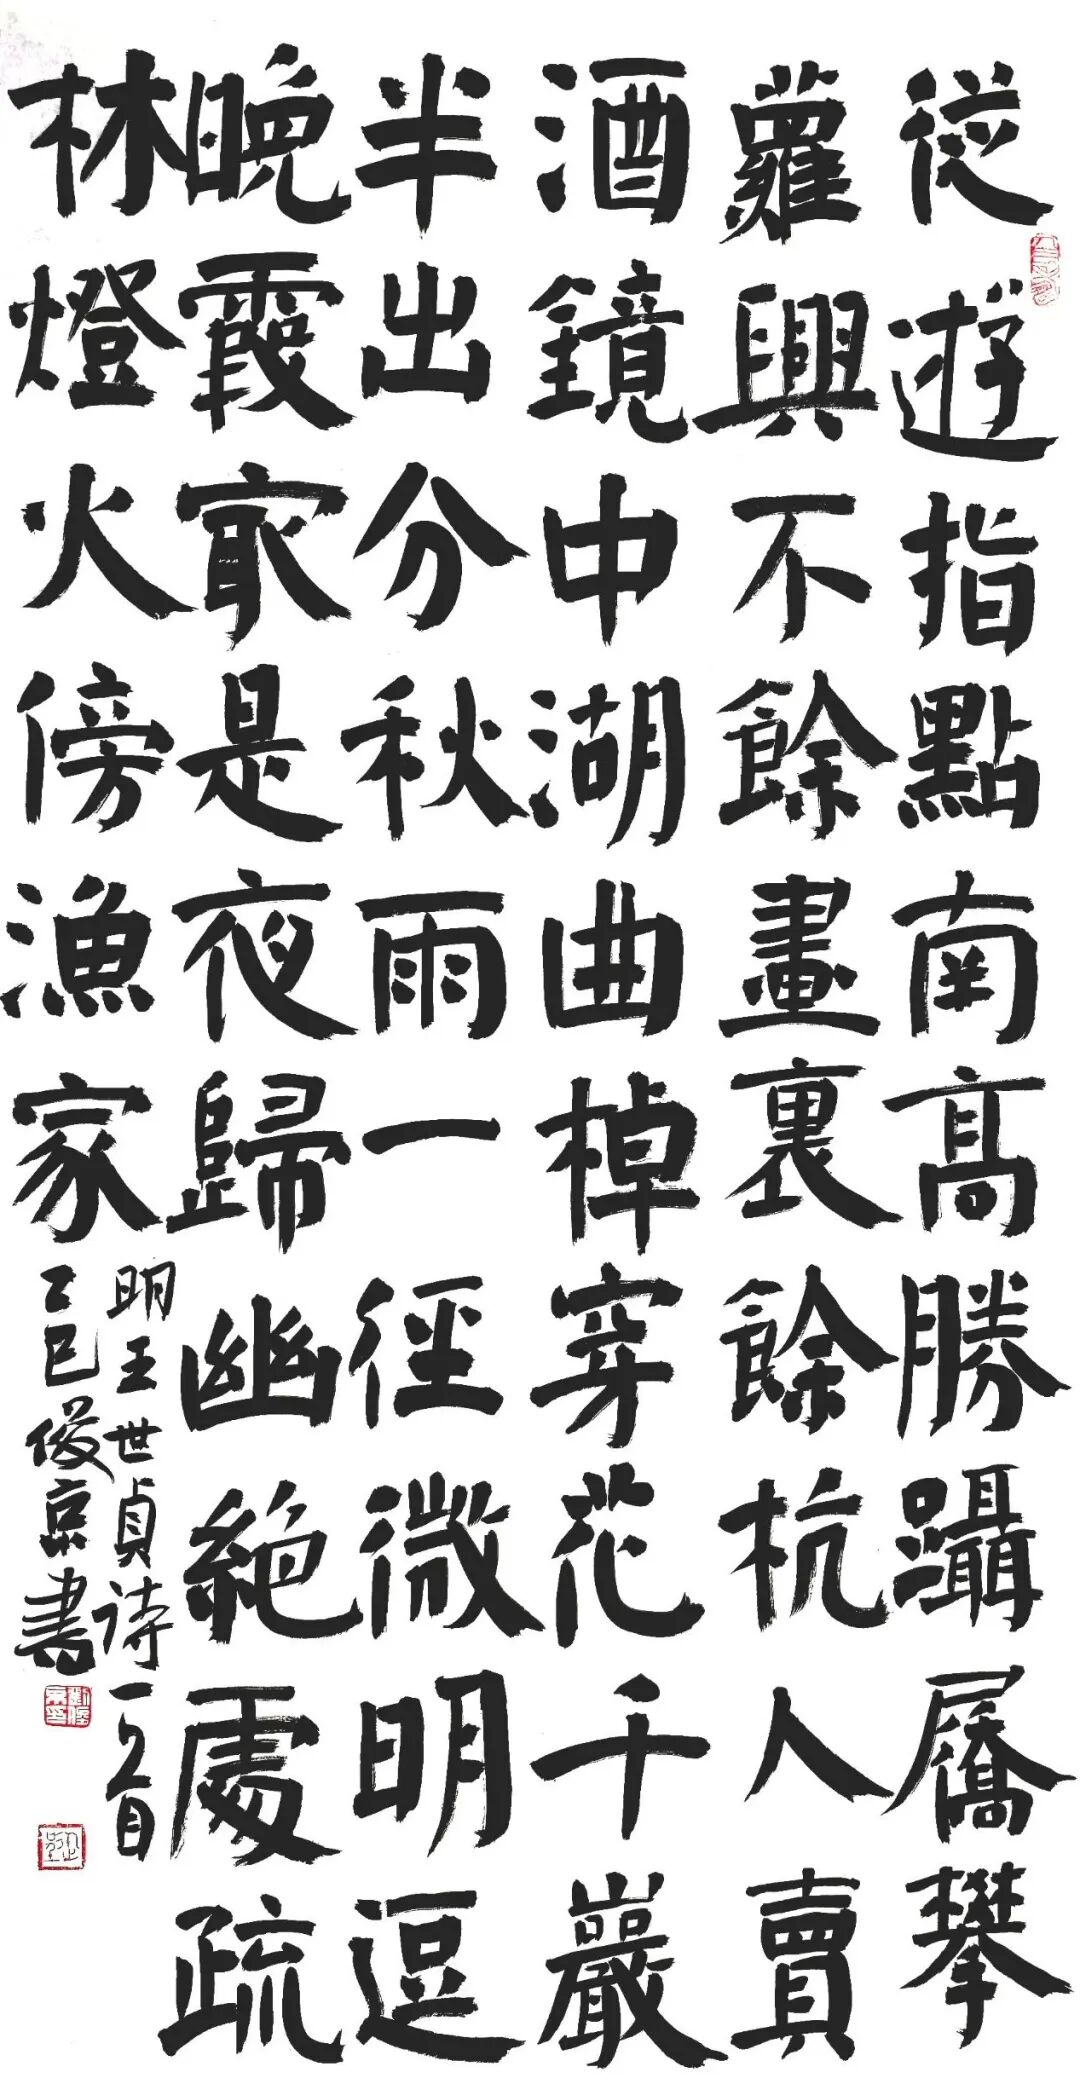 從遊指點南高勝躡屩攀
蘿興不餘畫裏餘杭人賣
酒鏡中湖曲棹穿花千巖
半出分秋雨一徑微明逗
晚霞最是夜歸幽絕處疏
林燈火傍漁家
明王世貞詩一首
乙巳俊京書